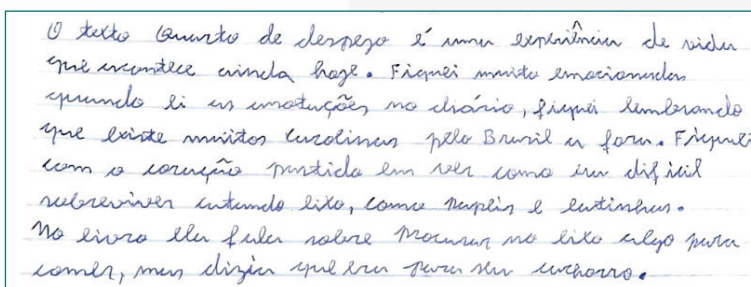 O texto Quarto de despezo é uma experiência de vida
que acontece ainda hoge. Fiquei muito emocionada
quando li as anotações no diário, fiquei lembrando
que existe muitos Carolinas pelo Brasil a fora. Fiquei
com o coração partido em ver como era dificil
sobreviver catando lixo, como papeis e latinhas.
No livro ela fala sobre Procurar no lixo algo para
comer, mas dizia que era para seu cachorro.